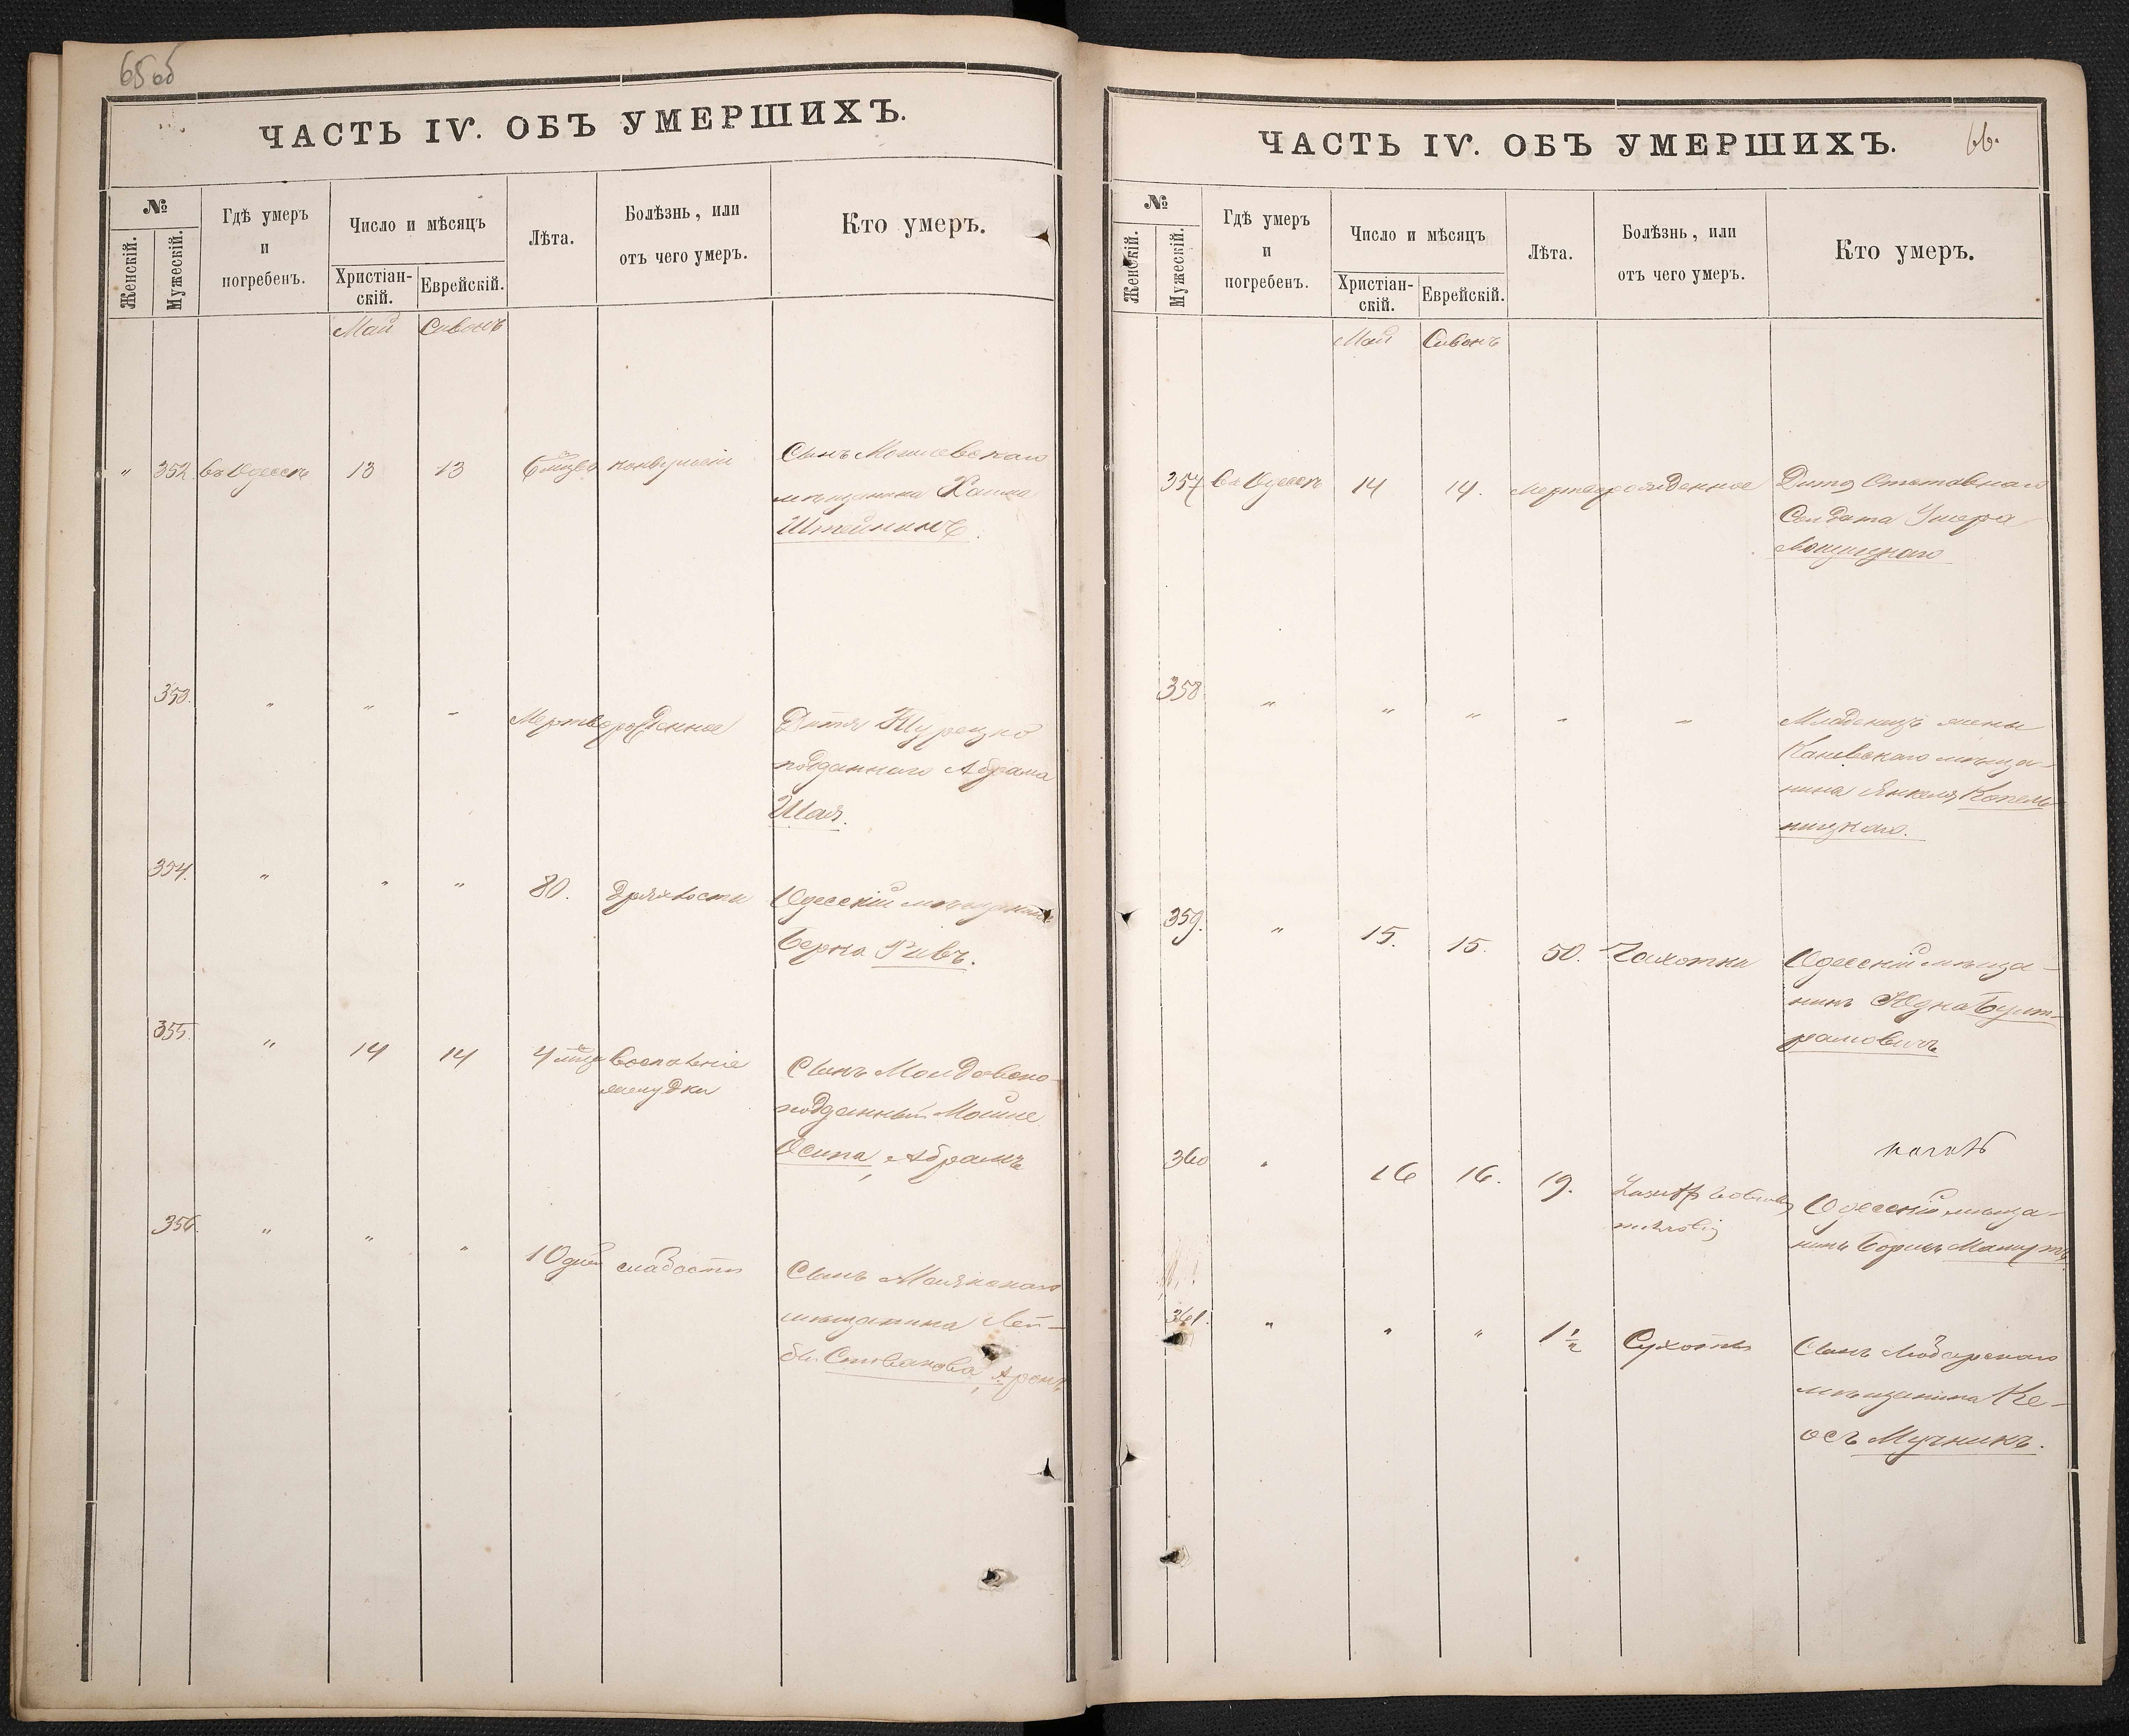 65 об
ЧАСТЬ IV. ОБЪ УМЕРШИХЪ.
№
Женскій.
Мужескій.
Гдѣ умеръ
и
погребенъ.
Число и мѣсяцъ
Христіан-
скій.
Еврейскій.
Лѣта.
Болѣзнь, или
отъ чего умеръ.
Кто умеръ.
Май Сивонъ
" 352. въ Одессѣ 13 13 6 мѣсц конвульсіи Сынъ
мѣщанина Хаима
353. " " " Мертворожденное Дитя Турецко
подданнаго Абрама
Шая.
354. " " " 80. Дряхлости Одесскій мѣщанинъ
Берко Ривъ.
355. " 14 14 4 мѣц Воспаленіе
желудка
Сынъ Молдавско-
подданный Мошке
Осипа, Абрамъ
356. " " " 10 дней слабости Сынъ Маякскаго
мѣщанина Лей-
бы Стовакова, Аронъ
66.
ЧАСТЬ IV. ОБЪ УМЕРШИХЪ.
№
Женскій.
Мужескій.
Гдѣ умеръ
и
погребенъ.
Число и мѣсяцъ
Христіан-
скій.
Еврейскій.
Лѣта.
Болѣзнь, или
отъ чего умеръ.
Кто умеръ.
Май Сивонъ
357 въ Одессѣ 14 14. Мертворожденное Дитя Отставнаго
Солдата Умера
358 " " " " " Младенецъ жены
Каневскаго мѣща-
нина Янкеля Копель-
ницкаго.
359. " 15. 15. 50. Чахотки Одесскій мѣща-
нинъ Юдка Бунт-
рамовичъ
360 " 16 16. 19. Одесскій мѣща-
нинъ Борисъ
361. " " " 1½ Сухоты Сынъ Любарскаго
мѣщанина Ке-
осъ Мучникъ.